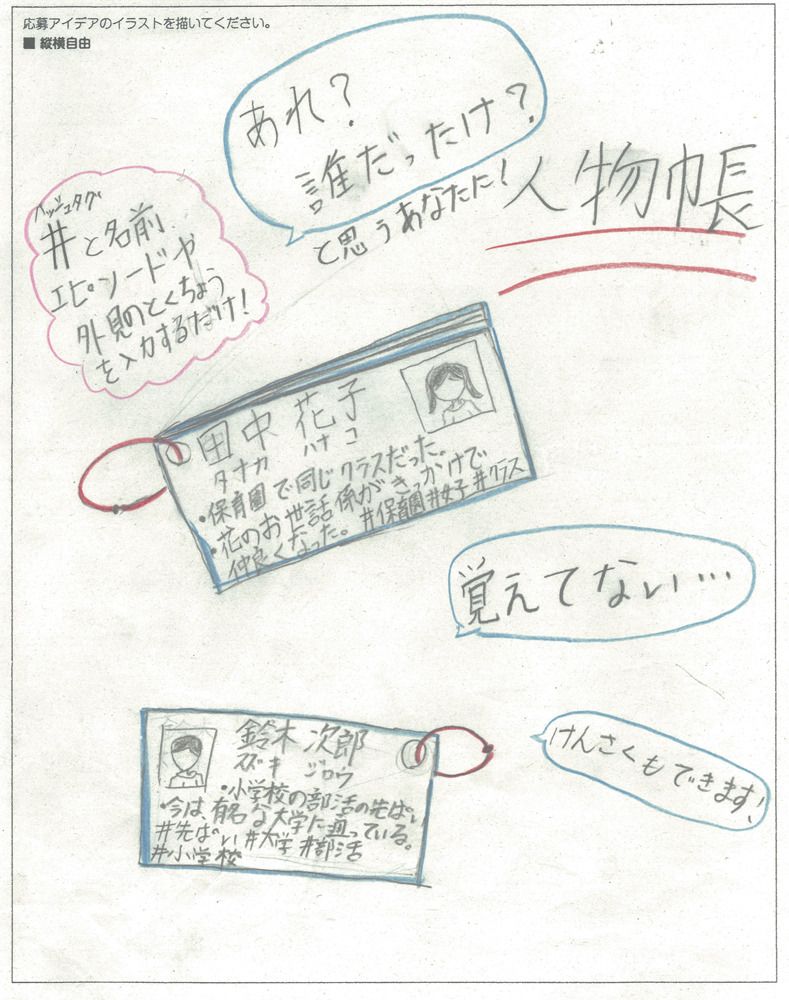 応募アイデアのイラストを描いてください。
■ 縦横自由
あれ?
誰だったけ?
と思うあなたに!
人物帳
ハッシュタグ
#と名前
エピソードや
外見のとくちょう
を入力するだけ!
田中 花子
タナカ ハナコ
・保育園で同じクラスだった。
・花のお世話係がきっかけで
仲良くなった。 #保育園 #女子 #クラス
覚えてない…
鈴木 次郎
スズキ ジロウ
・小学校の部活の先ぱい
・今は、有名な大学に通っている。
#先ぱい #大学 #部活
#小学校
けんさくもできます!